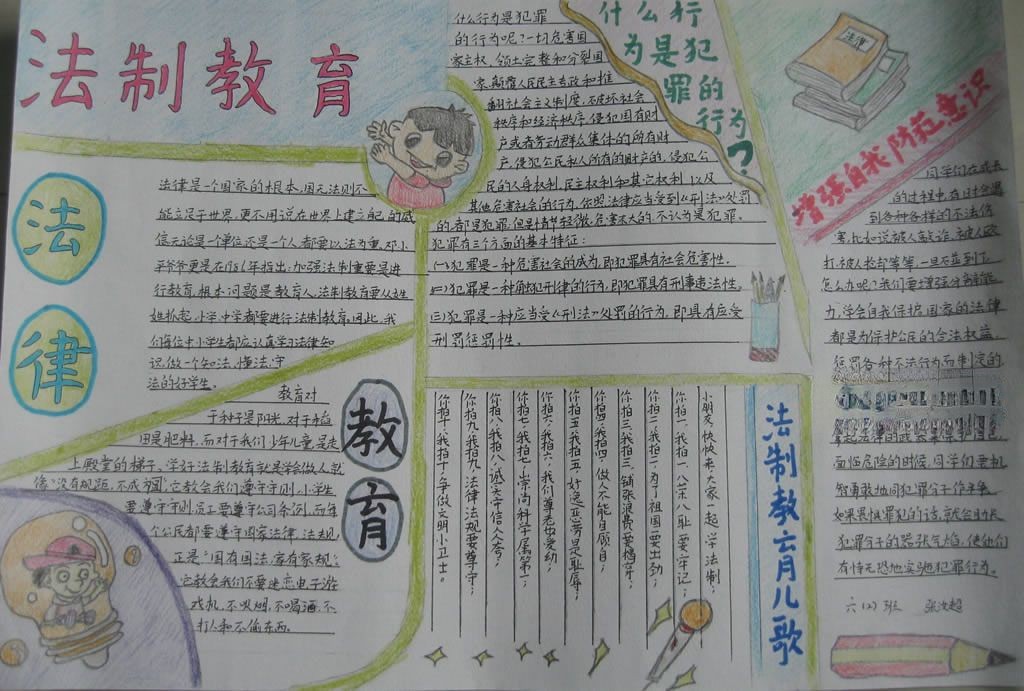 法制教育
法
律
法律是一个国家的根本,国无法则不
能立足于世界,更不用说在世界上建立起的威
信无论是一个单位还是一个人都要以法为重,邓小
平爷爷更是在1986年指出:加强法制重要是进
行教育,根本问题是教育人,法制教育要从娃
娃抓起,小学,中学都要进行法制教育。因此,我
们每位中小学生都应认真学习法律知
识,做一个知法,懂法,守
法的好学生。
教育
教育对
于种子是阳光,对于稻
田是肥料,而对于我们少年儿童,是走
上殿堂的梯子,学好法制教育就是学会做人,就
像"没有规距,不成方圆",它教会我们遵守守则,小学生
要遵守守则,员工要遵守公司条例,而每
个公民都要遵守国家律法,法规,
正是"国有国法,家有家规",
它教会我们不要迷恋电子游
戏机,不吸烟,不喝酒,不
打人和不偷东西。
什么行
为是犯
罪的
行为?
什么行为是犯罪
的行为呢?一切危害国
家主权、领土完整和分裂国
家,颠覆人民民主专政和推
翻社会主义制度,破坏社会
秩序和经济秩序,侵犯国有财
产或者劳动群众集体的所有财
产,侵犯公民私人所有的财产的,侵犯公
民的人身权利,民主权利和其它权利,以及
其他危害社会的行为,依照法律应当受到《刑法》处罚
的,都是犯罪,但是情节轻微,危害不大的,不认为是犯罪。
犯罪有三个方面的基本特征:
(一)犯罪是一种危害社会的成为,即犯罪具有社会危害性。
(二)犯罪是一种触犯刑律的行为,即犯罪具有刑事违法性。
(三)犯罪是一种应当受《刑法》处罚的行为,即具有应受
刑罚惩罚性。
法制教育儿歌
小朋友,快快来,大家一起学法制;
你拍一,我拍一,八荣八耻要牢记;
你拍二,我拍二,为了祖国要出劲;
你拍三,我拍三,铺张浪费要摒弃;
你拍四,我拍四,做人不能自顾自;
你拍五,我拍五,好逸恶劳是耻辱;
你拍六,我拍六,我们尊老也爱幼;
你拍七,我拍七,崇尚科学属第一;
你拍八,我拍八,诚实守信人人夸;
你拍九,我拍九,法律法规要尊守;
你拍十,我拍十,争做文明小卫士。
法律
增强自我防范意识
同学们在成长
的过程中,在日社会遇
到各种各样的不法侵
害,比如说被人敲诈,被人殴
打,被人抢劫等等,一旦不幸到了
怎么办呢?我们要增强分辨能
力,学会自我保护,国家的法律
都是为保护公民的合法权益,
惩罚各种不法行为而制定的
面临危险的时候,同学们要机
智勇敢地同犯罪分子作斗争,
如果畏惧罪犯的话,就会助长
犯罪分子的嚣张气焰,使他们
有恃无恐地实施犯罪行为。
六(2)班 张汝超